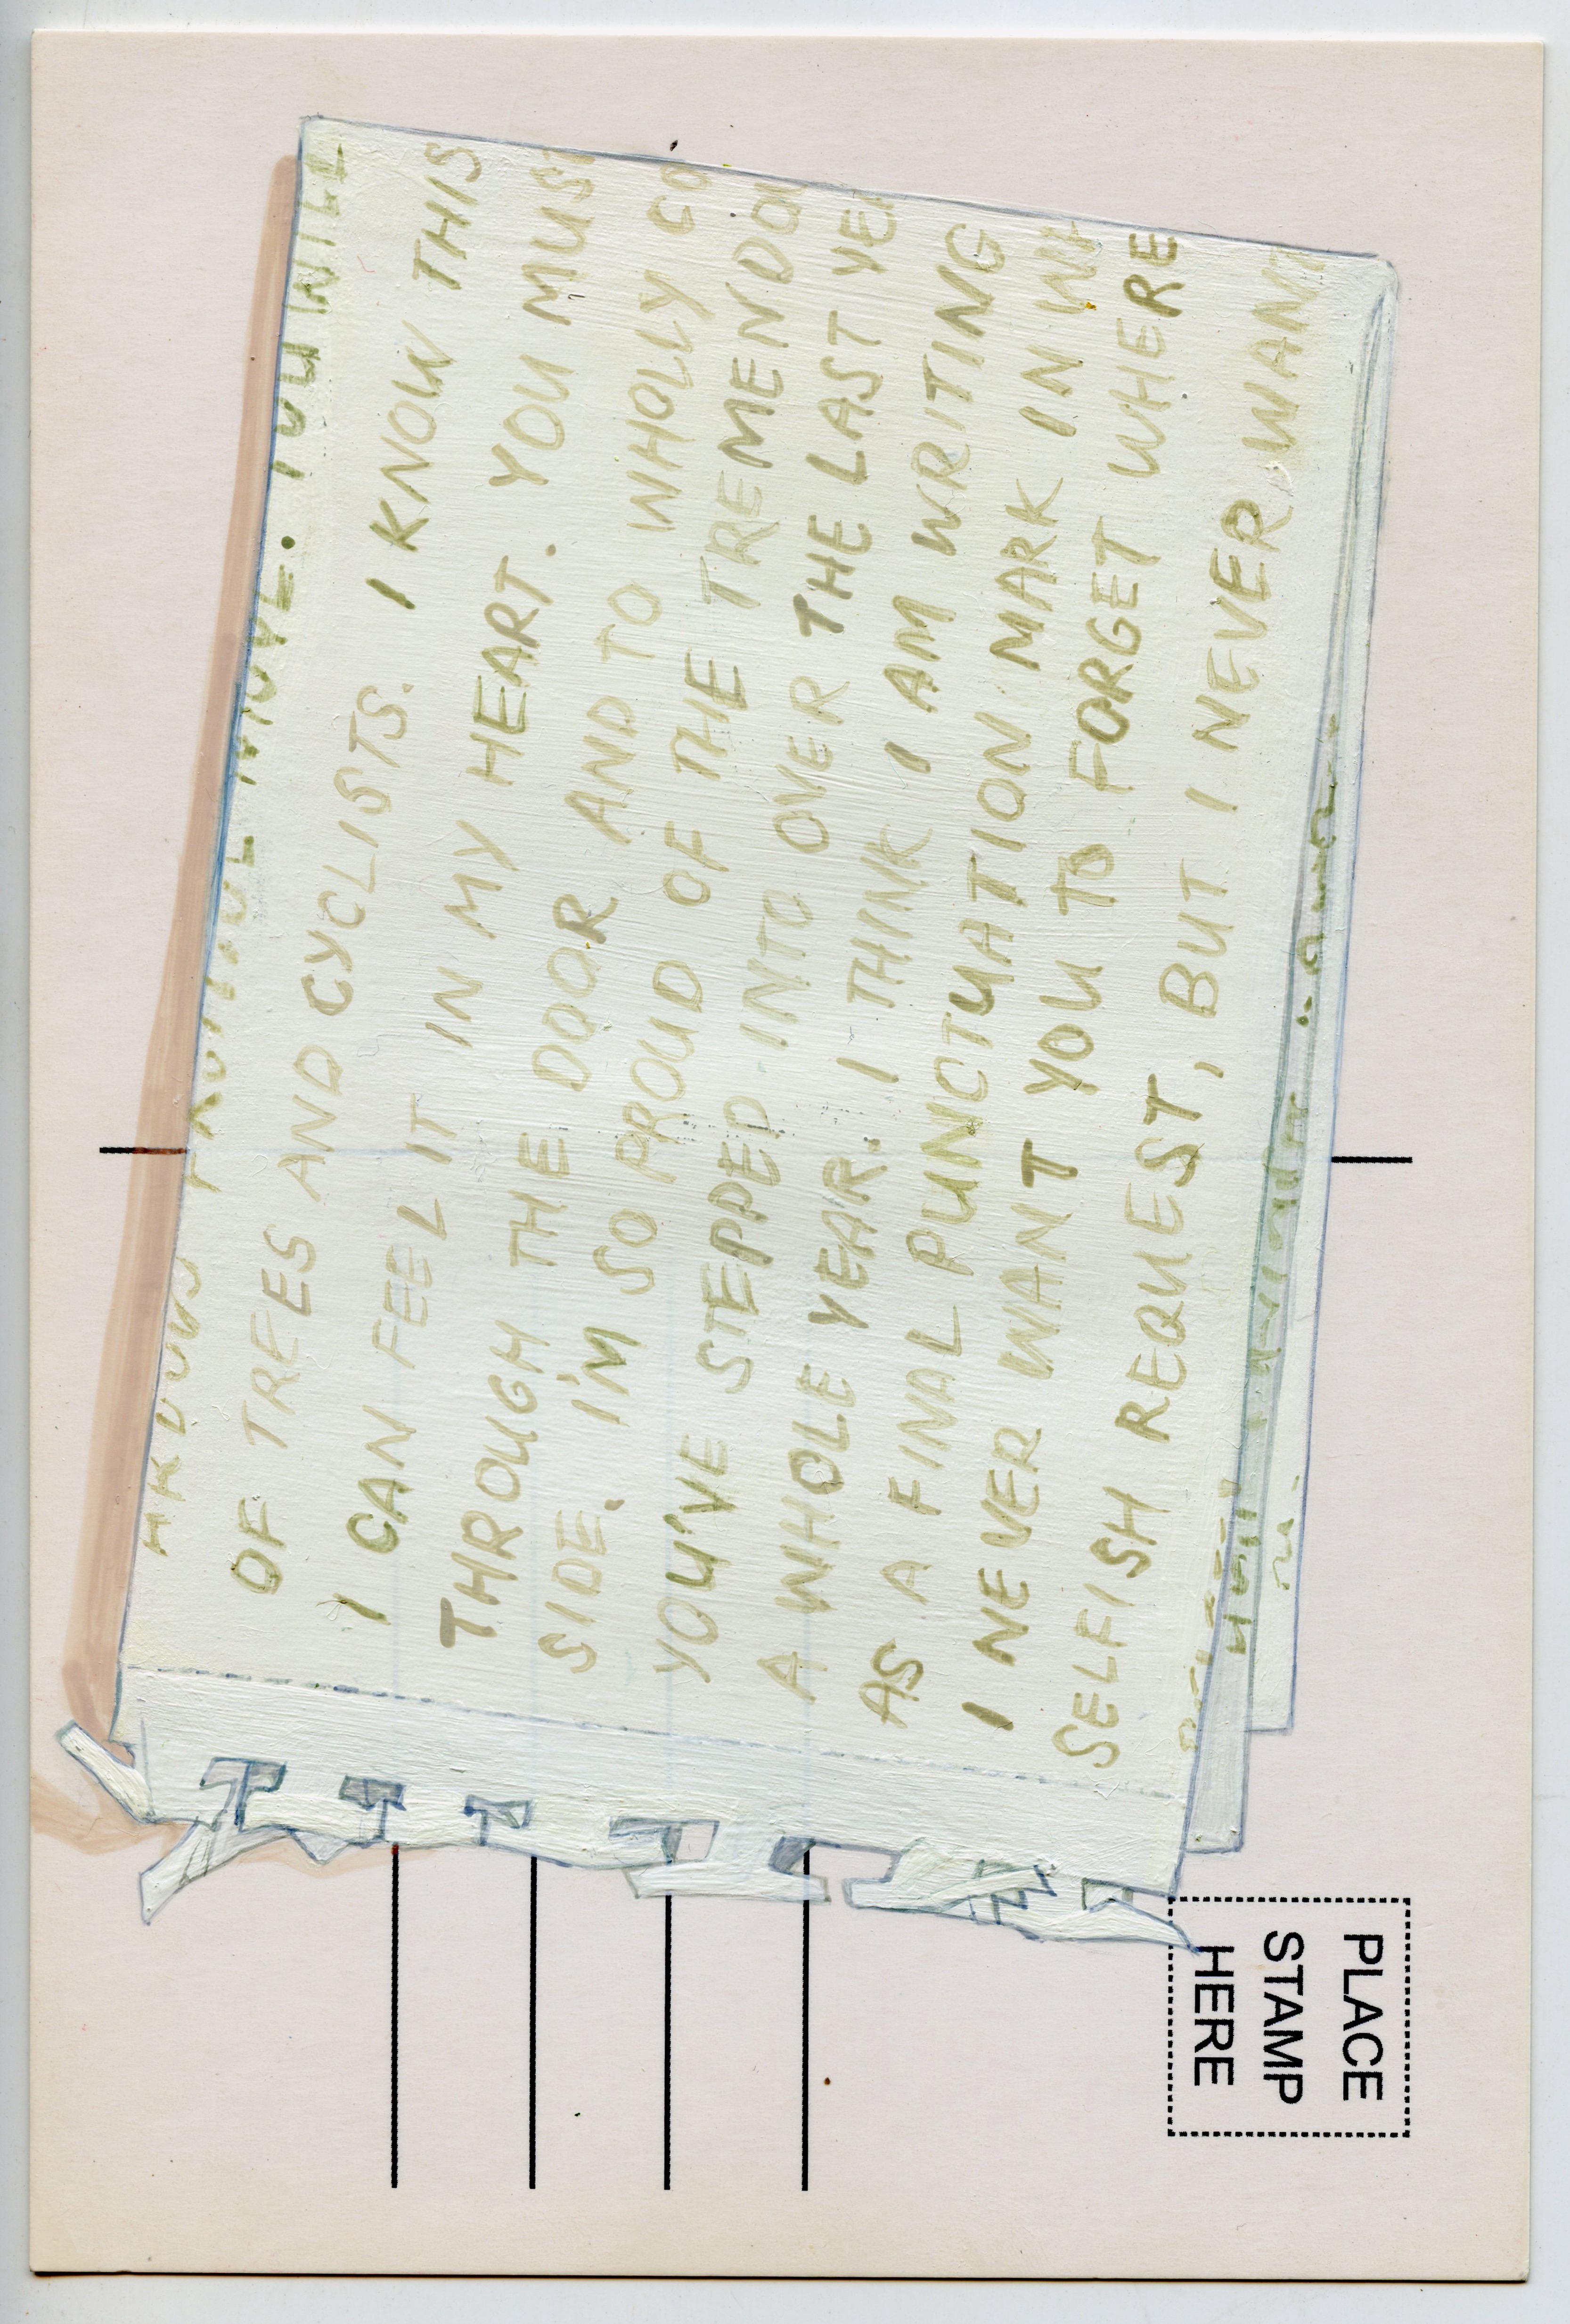 OF TREES AND CYCLISTS. I KNOW THIS
I CAN FEEL IT IN MY HEART. YOU MUST
THROUGH THE DOOR AND TO WHOLLY CO
SIDE. I'M SO PROUD OF THE TREMENDOU
YOU'VE STEPPED INTO OVER THE LAST YEA
A WHOLE YEAR. I THINK I AM WRITING
AS A FINAL PUNCTUATION MARK IN WH
I NEVER WANT YOU TO FORGET WHERE
SELFISH REQUEST, BUT I NEVER WANT
PLACE
STAMP
HERE